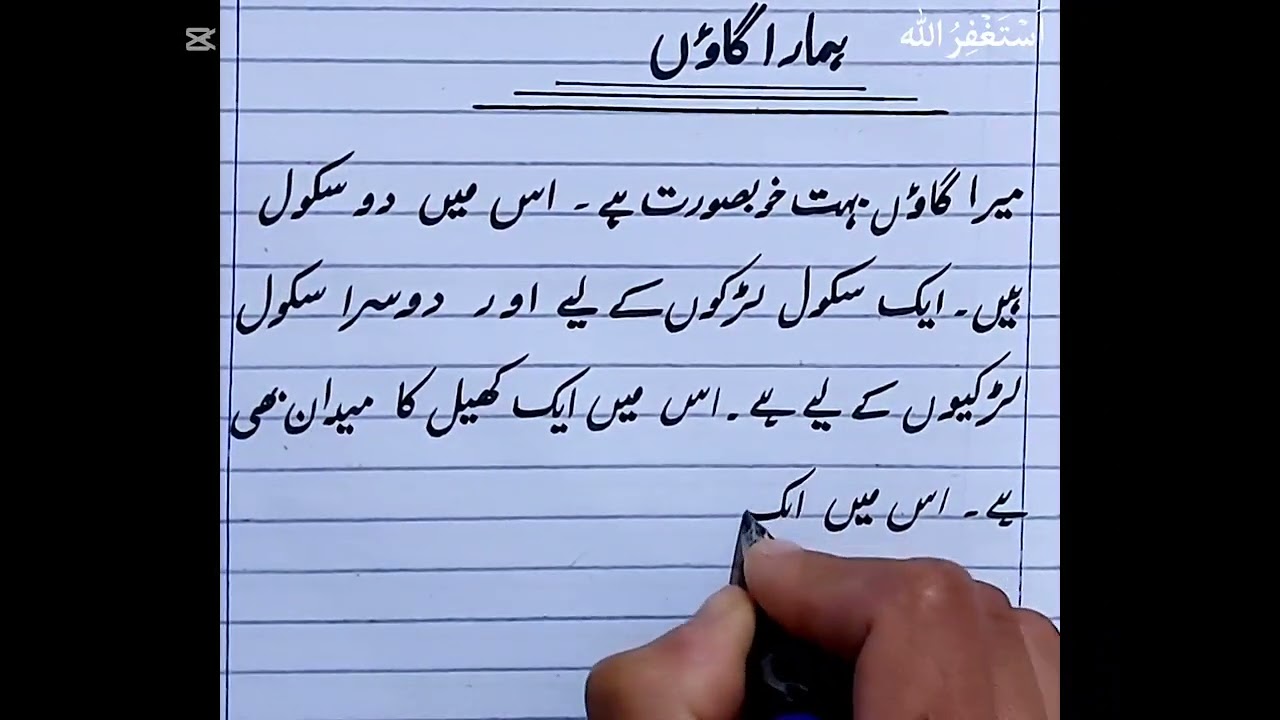 اَسْتَغْفِرُ اللّٰه
ہمارا گاوْں
میرا گاوْں بہت خوبصورت ہے ۔ اس میں دو سکول
ہیں ۔ ایک سکول لڑکوں کے لیے اور دوسرا سکول
لڑکیوں کے لیے ہے ۔ اس میں ایک کھیل کا میدان بھی
ہے ۔ اس میں ایک